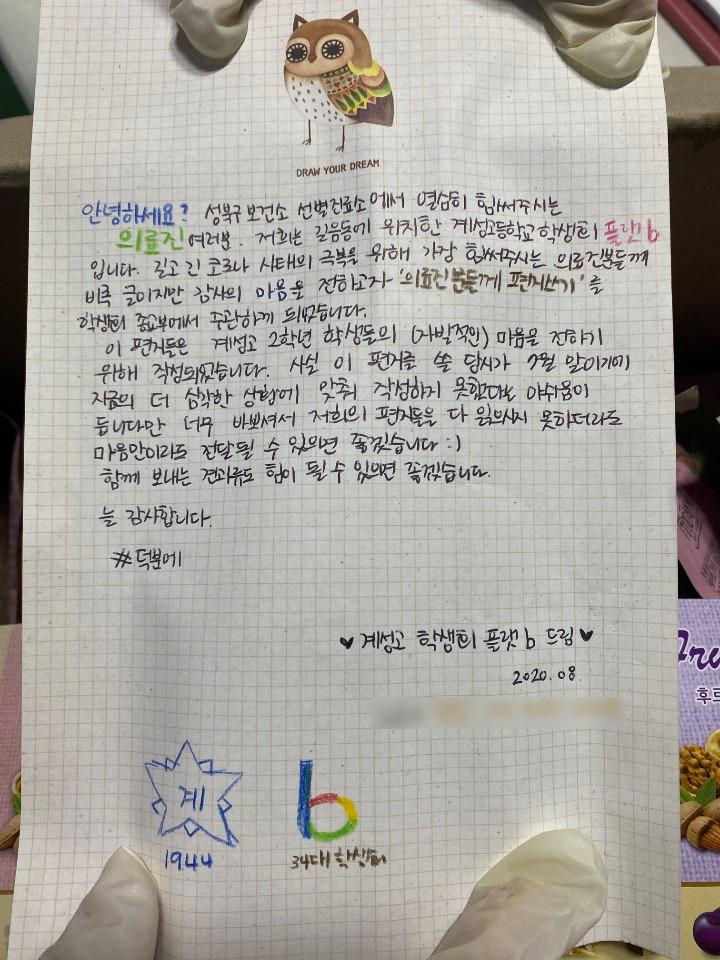 DRAW YOUR DREAM
안녕하세요? 성북구 보건소 선별진료소에서 열심히 힘써주시는
의료진 여러분. 저희는 길음동에 위치한 계성고등학교 학생회 플랫b
입니다. 길고 긴 코로나 사태의 극복을 위해 가장 힘써주시는 의료진분들께
비록 글이지만 감사의 마음을 전하고자 '의료진분들께 편지쓰기'를
학생회 종교부에서 주관하게 되었습니다.
이 편지들은 계성고 2학년 학생들의 (자발적인) 마음을 전하기
위해 작성되었습니다. 사실 이 편지를 쓸 당시가 7월 말이기에
지금의 더 심각한 상황에 맞춰 작성하지 못했다는 아쉬움이
듭니다만 너무 바쁘셔서 저희의 편지들을 다 읽으시지 못하더라도
마음만이라도 전달될 수 있으면 좋겠습니다 :)
함께 보내는 견과류도 힘이 될 수 있으면 좋겠습니다.
늘 감사합니다.
#덕분에
♥ 계성고 학생회 플랫b 드림 ♥
2020.08.
계
1944
b
34대 학생회
후르